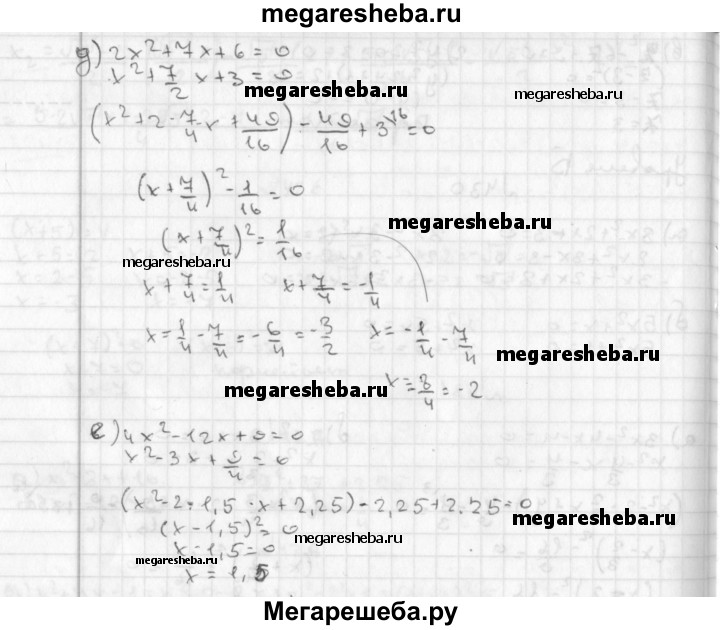 megaresheba.ru
д) 2x²+7x+6=0
x²+7/2 x+3=0
megaresheba.ru
megaresheba.ru
(x²+2·7/4·x+49/16)-49/16+3^16=0
(x+7/4)²-1/16=0
megaresheba.ru
(x+7/4)²=1/16
megaresheba.ru
x+7/4=1/4 x+7/4=-1/4
x=1/4-7/4=-6/4=-3/2 x=-1/4-7/4
megaresheba.ru
megaresheba.ru
x=-8/4=-2
е) 4x²-12x+9=0
x²-3x+9/4=0
(x²-2·1,5·x+2,25)-2,25+2.25=0
megaresheba.ru
(x-1,5)²=0
megaresheba.ru
x-1,5=0
megaresheba.ru
x=1,5
Мегарешеба.ру